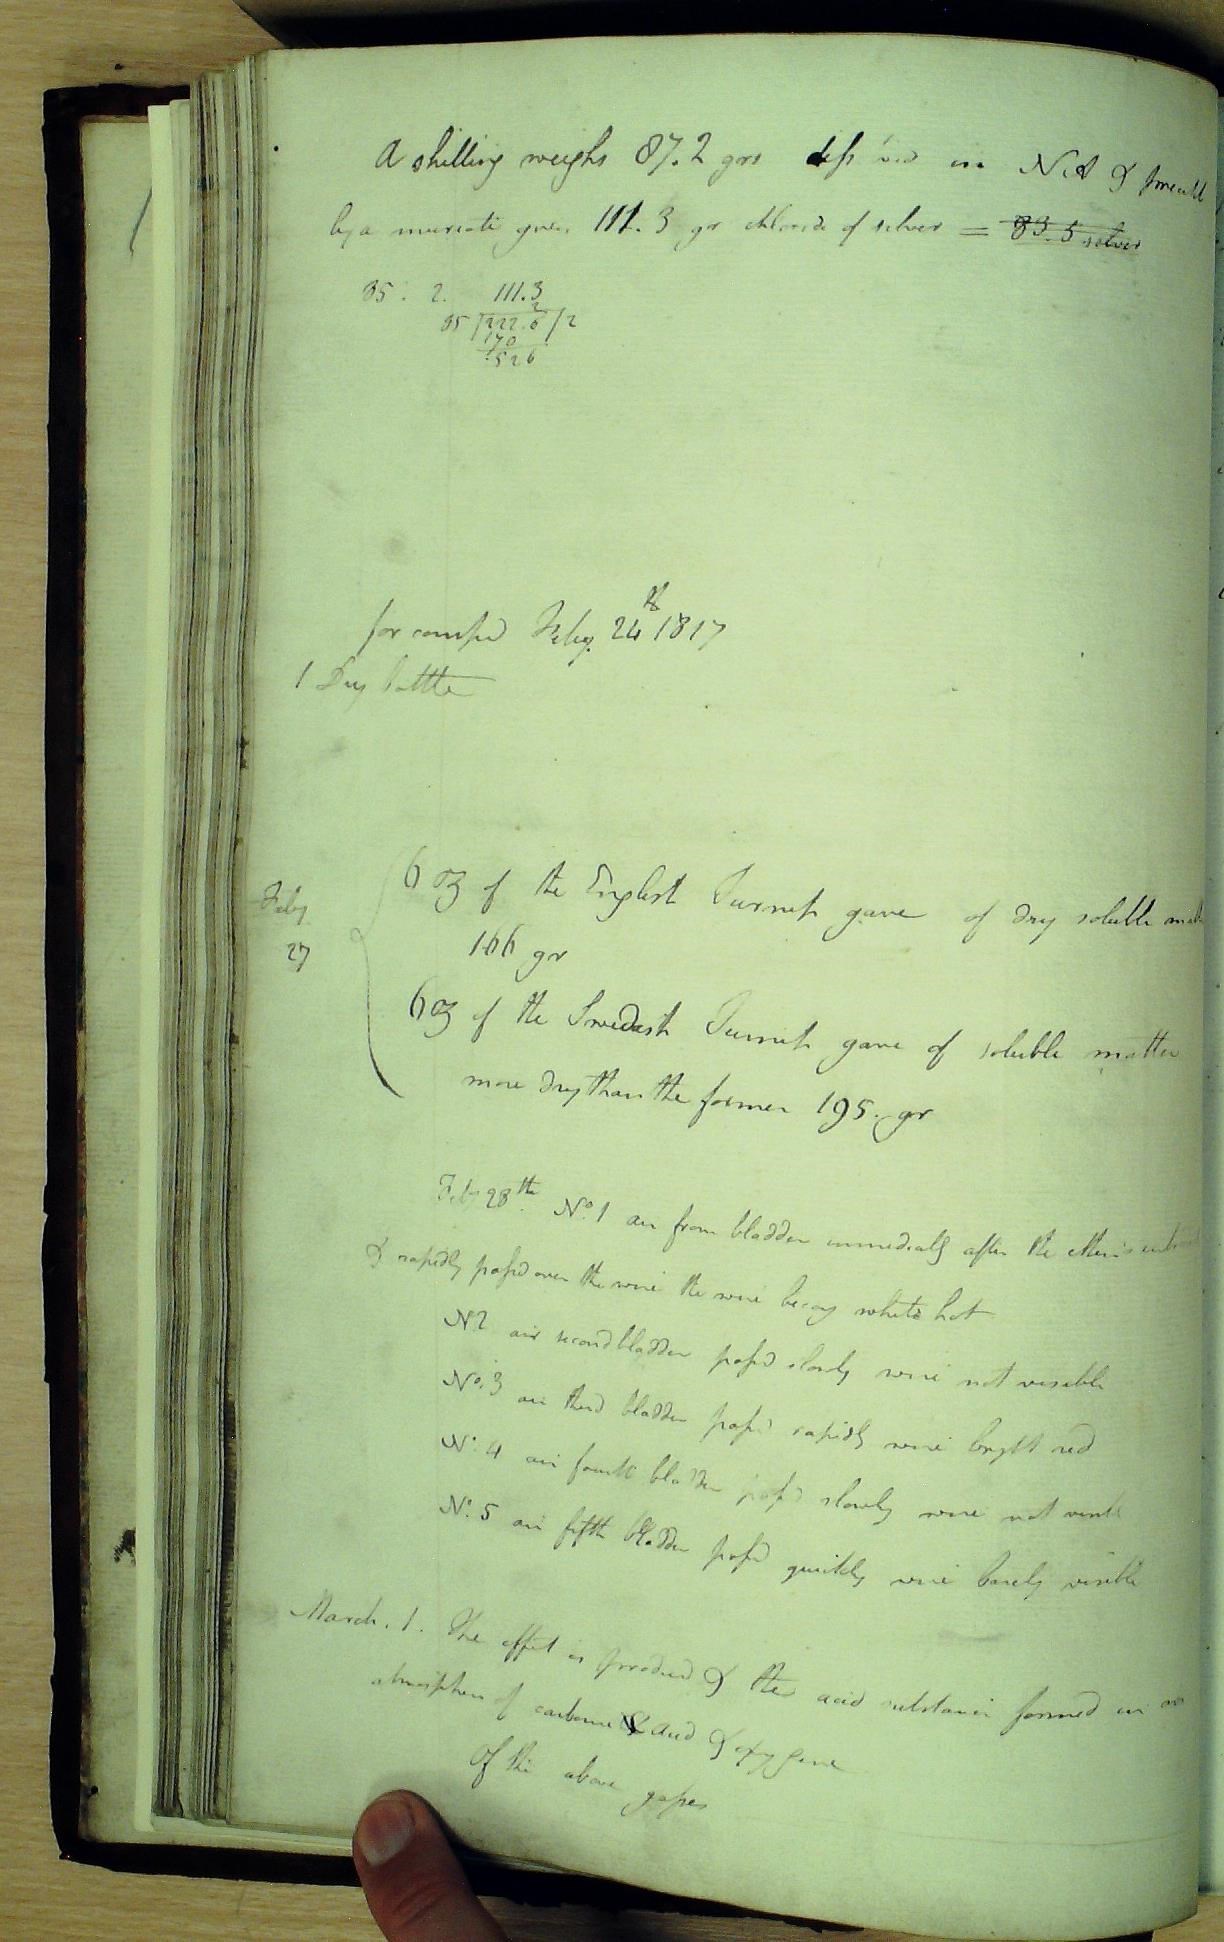 A shilling weighs 87.2 grs diss'ved in N A & precipitd
by a muriate gives 111.3 gr chloride of silver = 83.5 silver
95 : 2. 111.3
2
95 222.6 / 2
170
526
for compd Feby. 24th 1817
1 Dry bottle
Feby 27
6 oz of the English Turnip gave of dry soluble matter
166 gr
6 oz of the Swedish Turnip gave of soluble matter
more dry than the former 195. gr
Feby 28th. No. 1 air from bladder immedialy after the ether
& rapidly passd over the wire the wire white hot
N 2 air second bladder passd slowly wire not visible
No. 3 air third bladder passd rapidly wire bright red
No. 4 air fourth bladder passd slowly wire not visible
No. 5 air fifth bladder passd quickly wire barely visible
March. 1. The effect is produced & the acid substance formed in an
atmosphere of carbonic acid & oxygene
Of the above gases